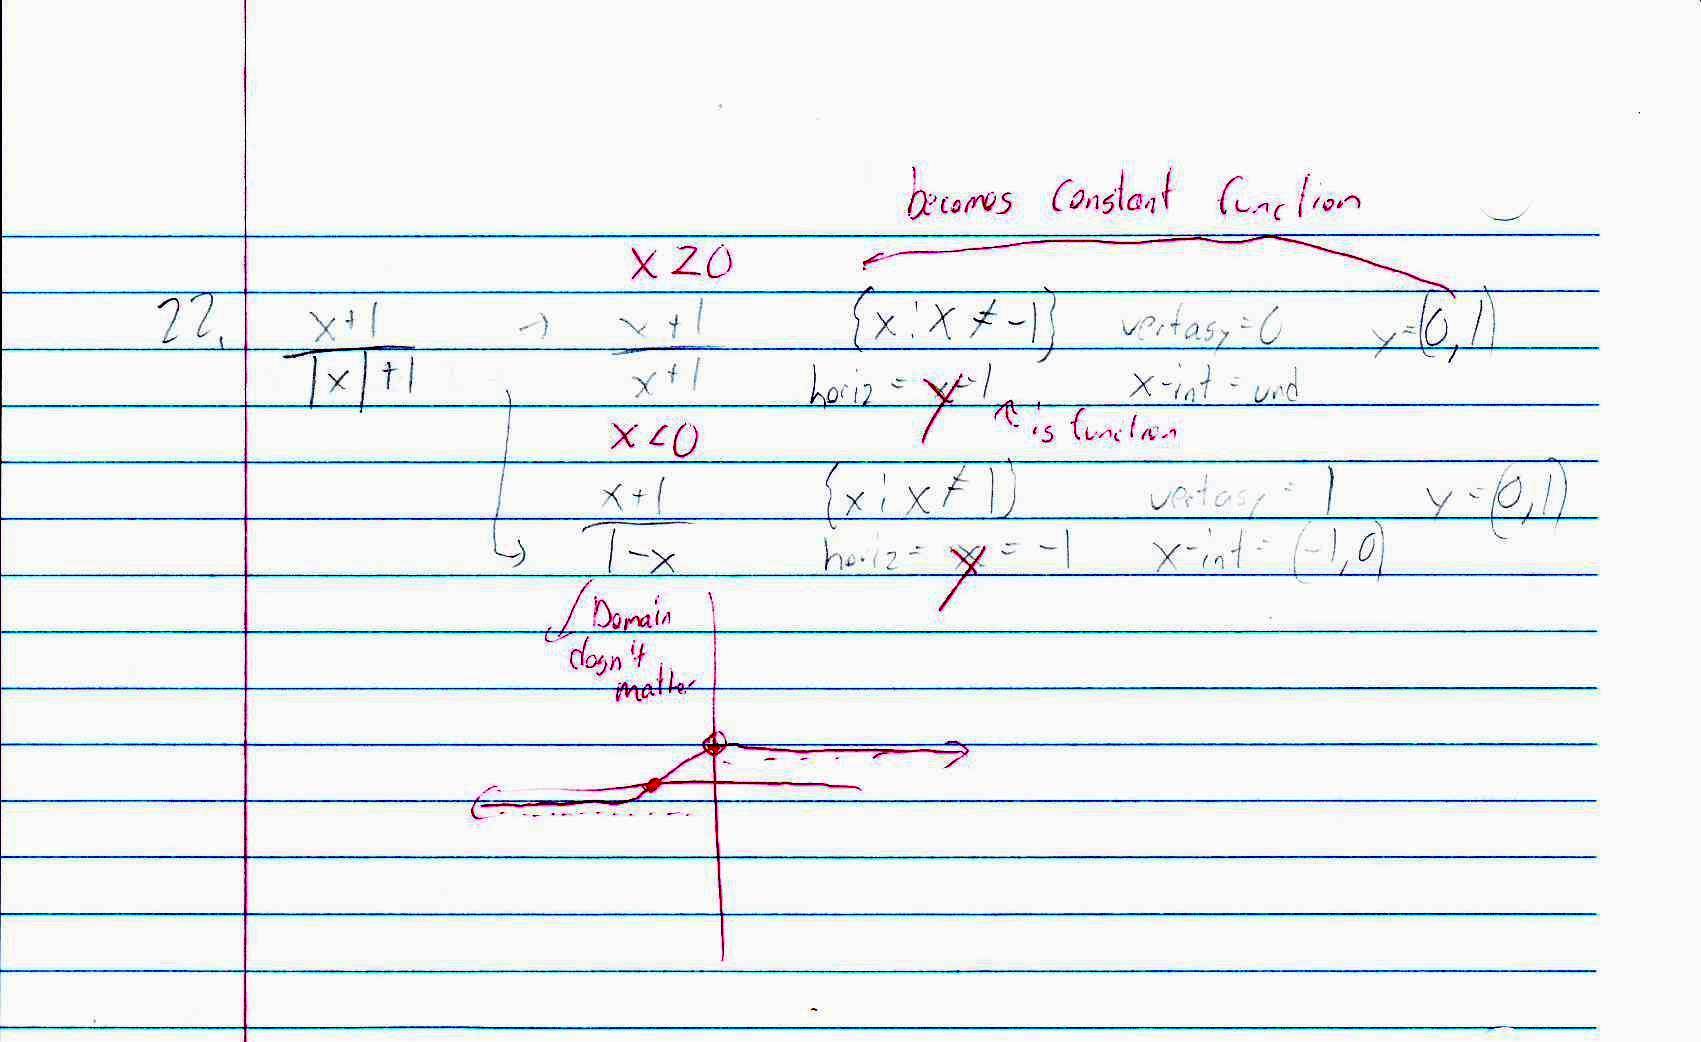 becomes constant function
x ≥ 0
22. x+1 / |x|+1 → x+1 / x+1 {x : x ≠ -1} vertasy = 0 y = (0,1)
horiz = y = 1 x-int = und
is function
x < 0
x+1 / 1-x {x : x ≠ 1} vertasy = 1 y = (0,1)
horiz = y = -1 x-int = (-1,0)
Domain
dosn't
matter